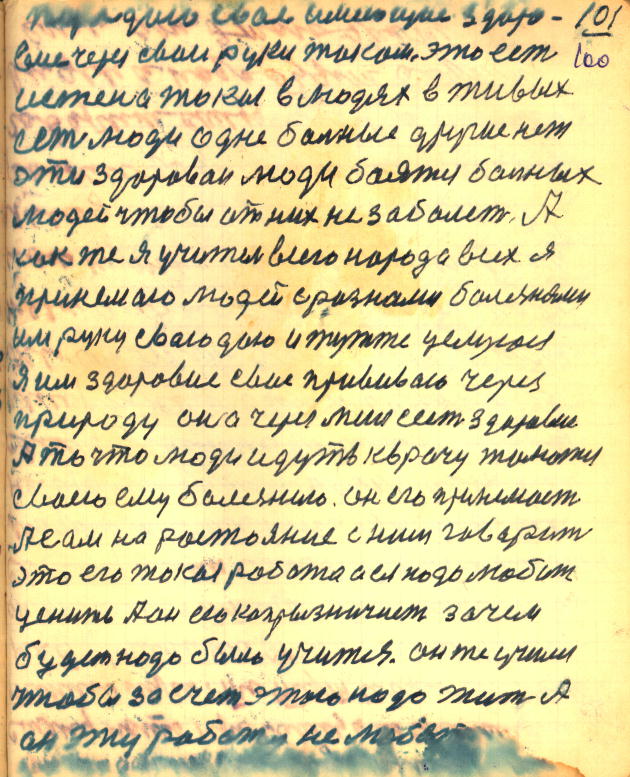 передаю свое имеющие здоро- 101
вие через свои руки током. это ест 100
истена такая в людях в живых
сет люди одне болные другие нет
эти здороваи люди баятся болных
людей чтобы от них не заболет. А
как же я учител всего народа всех я
принемаю людей с разнами болезнями
им руку своло даю и тутже целуюся
я им здоровие свое прививаю через
природу она через мене сеет здоровие
А то что люди идуть к врачу
своею ему болезнию. он его принемает
А сам на ростояние с ним говорит
это его такая работа ася надо любит
ценить А он его зачем
будет надо было учится. он же учился
чтобы за счет этого надо жит А
он эту работу не любит